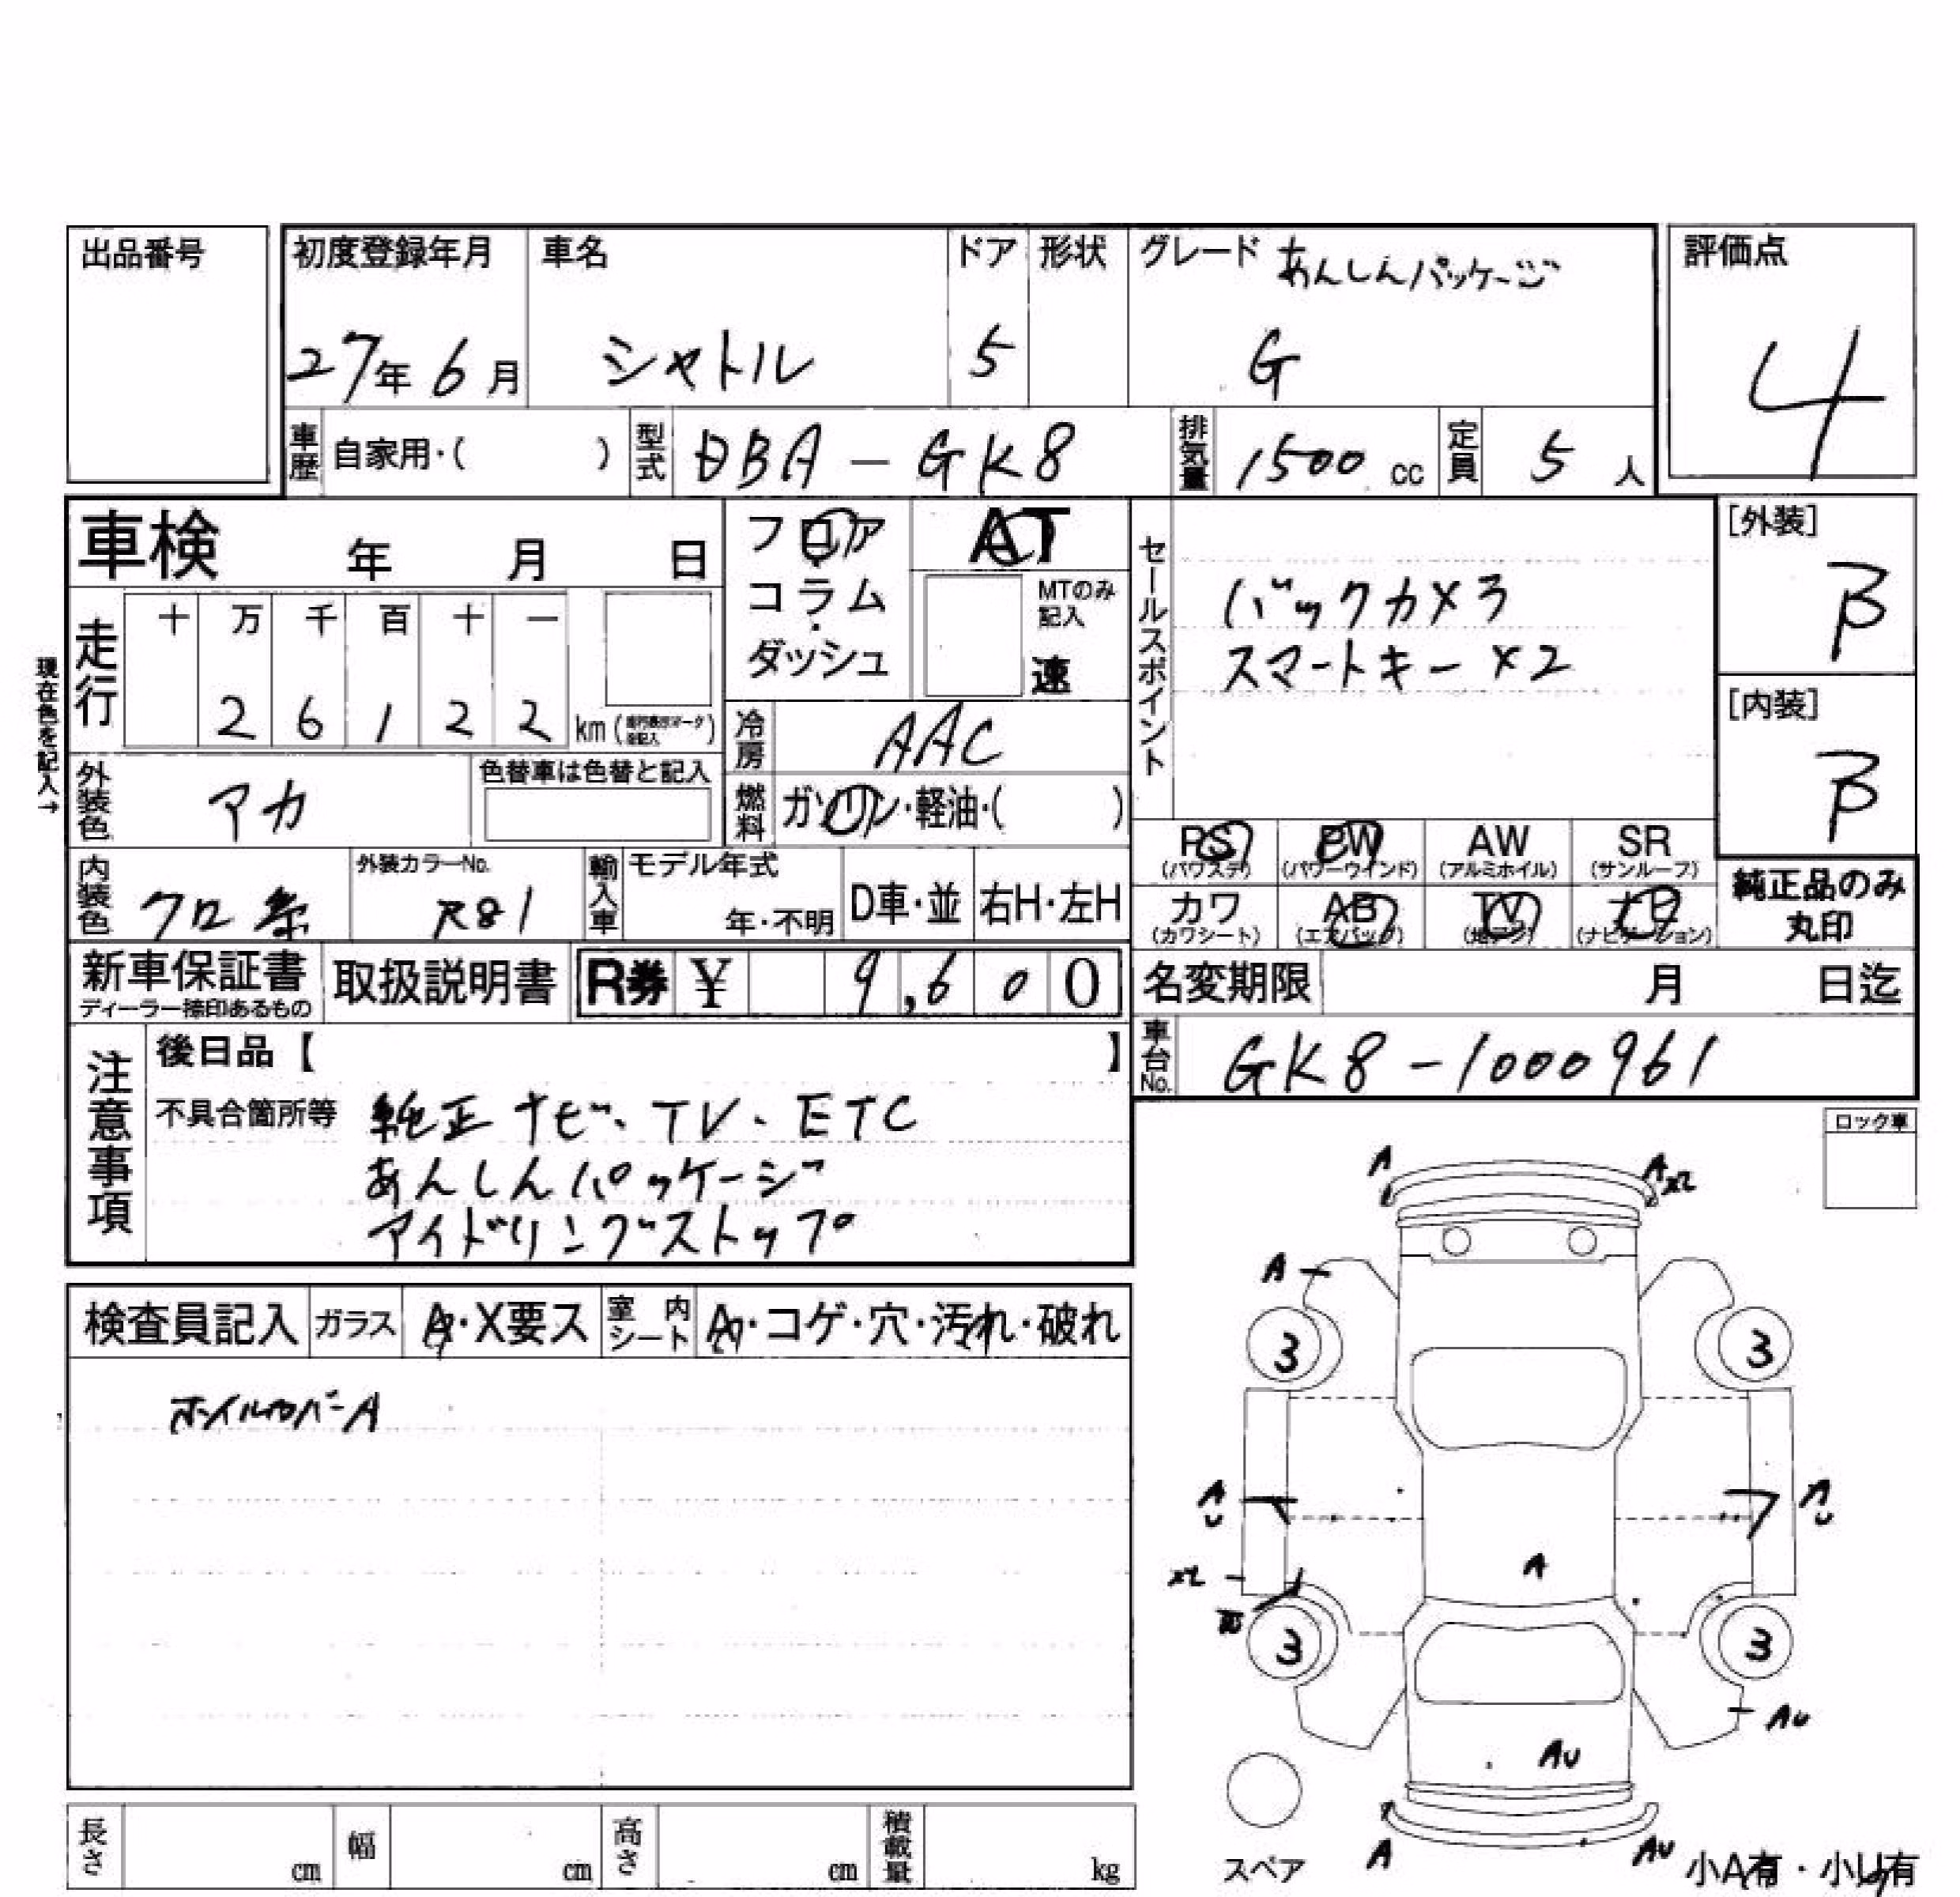 出品番号
初度登録年月 車名 ドア 形状 グレード あんしんパッケージ 評価点
27年 6月 シャトル 5 G 4
車歴 自家用・( ) 型式 DBA-GK8 排気量 1500 cc 定員 5 人
車検 年 月 日
フロア AT
コラム
ダッシュ
MTのみ記入
速
セールスポイント
バックカメラ
スマートキー×2
[外装]
β
[内装]
β
現在色を記入→
走行 十 万 千 百 十 一
2 6 1 2 2 km
冷房 AAC
外装色 アカ 色替車は色替と記入
燃料 ガソリン・軽油・( )
PS PW AW SR
(パワステ) (パワーウインド) (アルミホイル) (サンルーフ)
カワ AB TV ナビ
(カワシート) (エアバッグ) (地デジ) (ナビゲーション)
純正品のみ
丸印
内装色 クロ系 外装カラーNo. R81 輸入車 モデル年式 年・不明 D車・並 右H・左H
新車保証書 取扱説明書 R券 ¥ 9,600
ディーラー捺印あるもの
名変期限 月 日迄
車台No. GK8-1000961
注意事項
後日品【 】
不具合箇所等 純正ナビ、TV、ETC
あんしんパッケージ
アイドリングストップ
ロック車
検査員記入 ガラス A・X要ス 室内シート A・コゲ・穴・汚れ・破れ
ホイルカバーA
A A
A
3 3
A U A U
A
3 3
AU
AU
A AU
スペア
小A有・小U有
長さ cm 幅 cm 高さ cm 積載量 kg